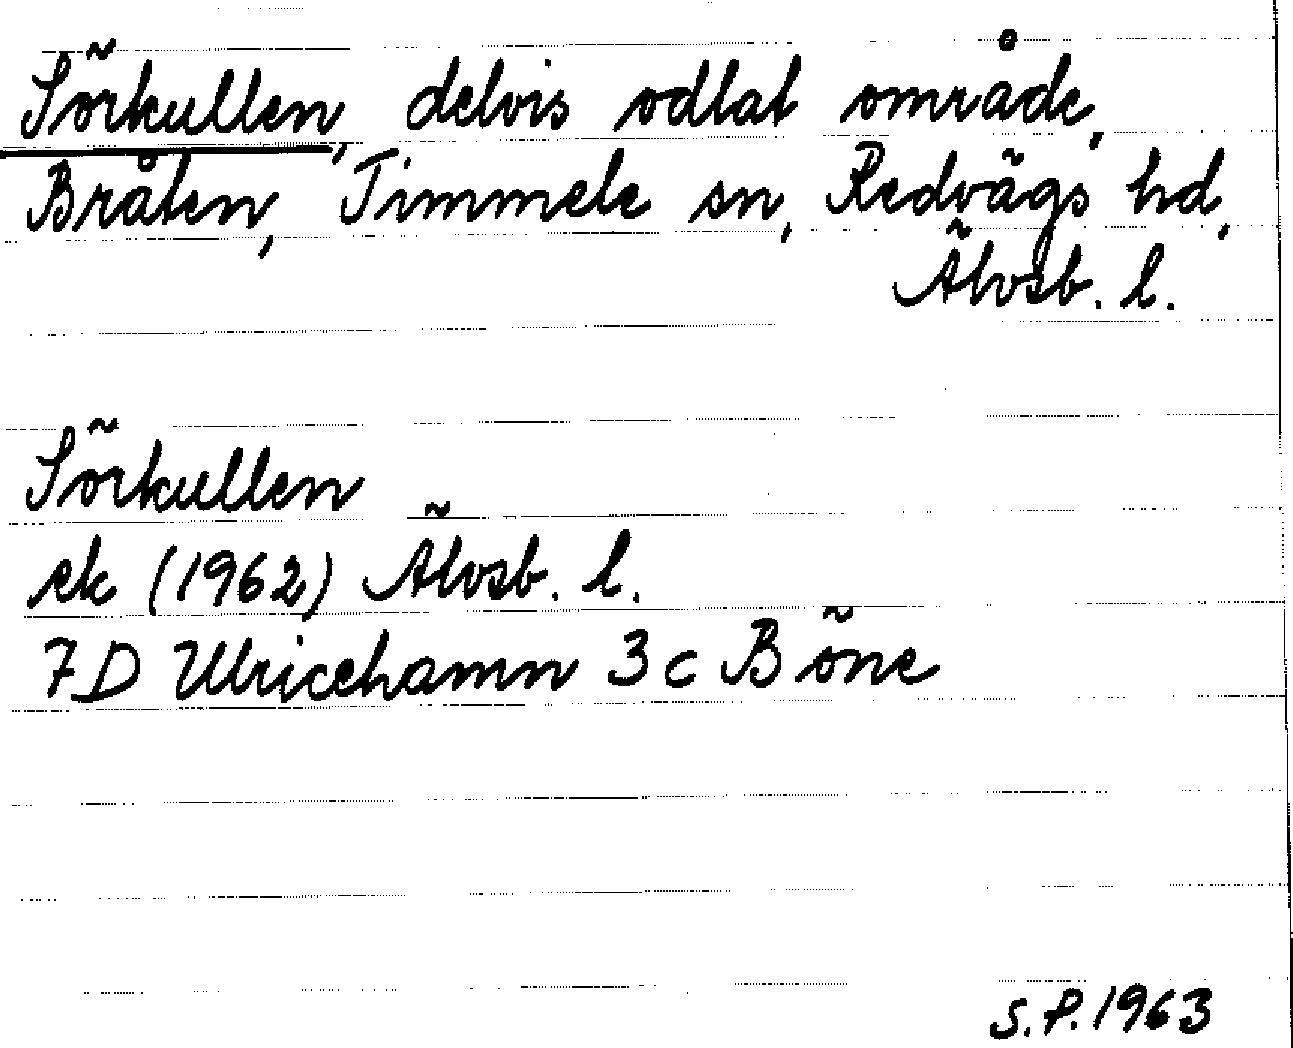 Sörkullen, delvis odlat område,
Bråten, Timmele sn, Redvägs hd,
Älvsb. l.
Sörkullen
ek (1962) Älvsb. l.
7D Ulricehamn 3c Böne
S.P. 1963